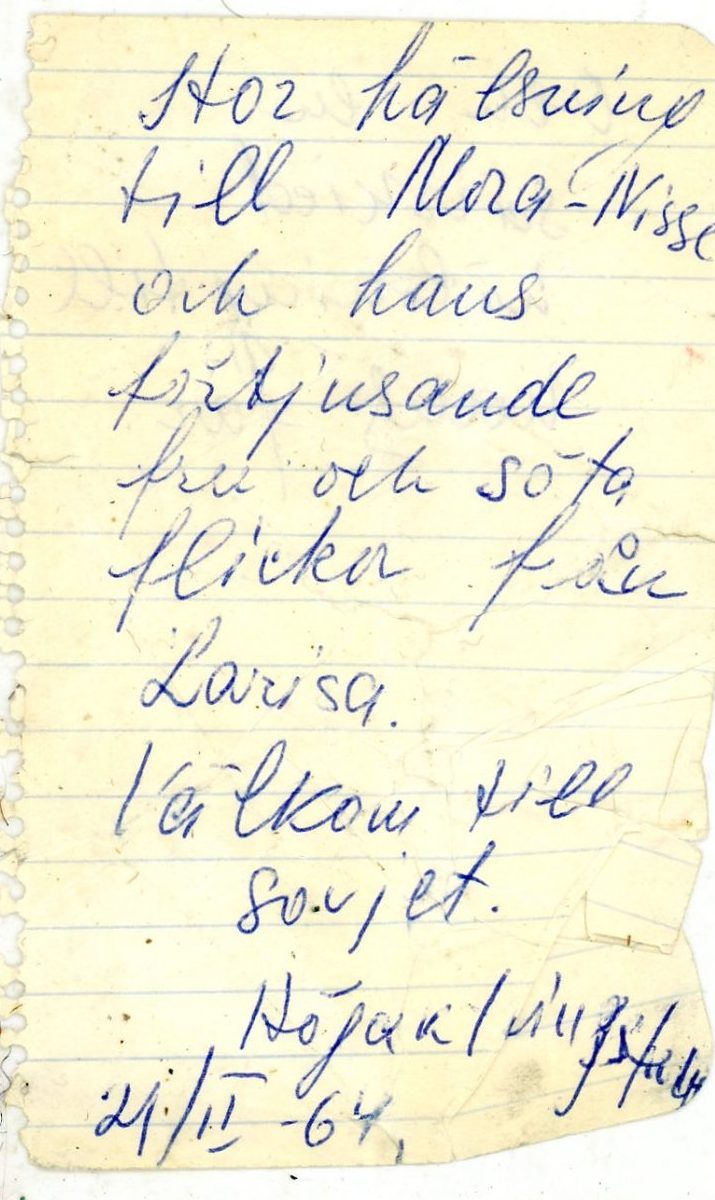 Stor hälsning
till Mora-Nisse
och hans
förtjusande
fru och söta
flickor från
Larisa.
Välkom till
sovjet.
21/II -64.